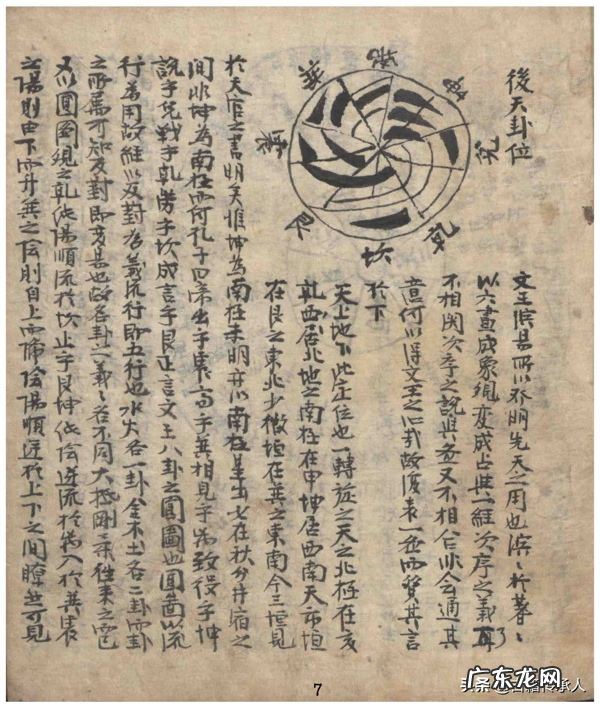 後天卦位
離
坤
兌
乾
坎
艮
震
巽
文王演易所以不明先天之用也演
以六畫成象觀变成占與一經次序之義
不相関次序之說與 又不相合非会通其
意何以得文王之心哉故復表一 而質其言
於下
天上地下此定位也一轉旋之天之北極在亥
乾西居北地之南極在申坤居西南天市垣
在艮之東北少微垣在巽之東南今三垣見
於天官之書明矣惟坤為南極未明 以南極星出 在秋分井宿之
間非坤為南極而何孔子曰帝出乎震 乎巽相見乎离致役乎坤
說乎兌戰乎乾勞乎坎成言乎艮正言文王八卦之圓圖也圓圖以流
行為用故經以反對為義流行即五行也水火各一卦金木土各二卦而卦
之所属可知反對即变易也故各卦一義各不同大抵剛柔往来之
又以圓圖観之乾統陽順流於坎止乎艮坤統陰逆流於 入於巽
之陽則由下而升巽之陰則自上而降陰陽順逆於上下之間瞭然可見
7
头条
传承人
广东龙网